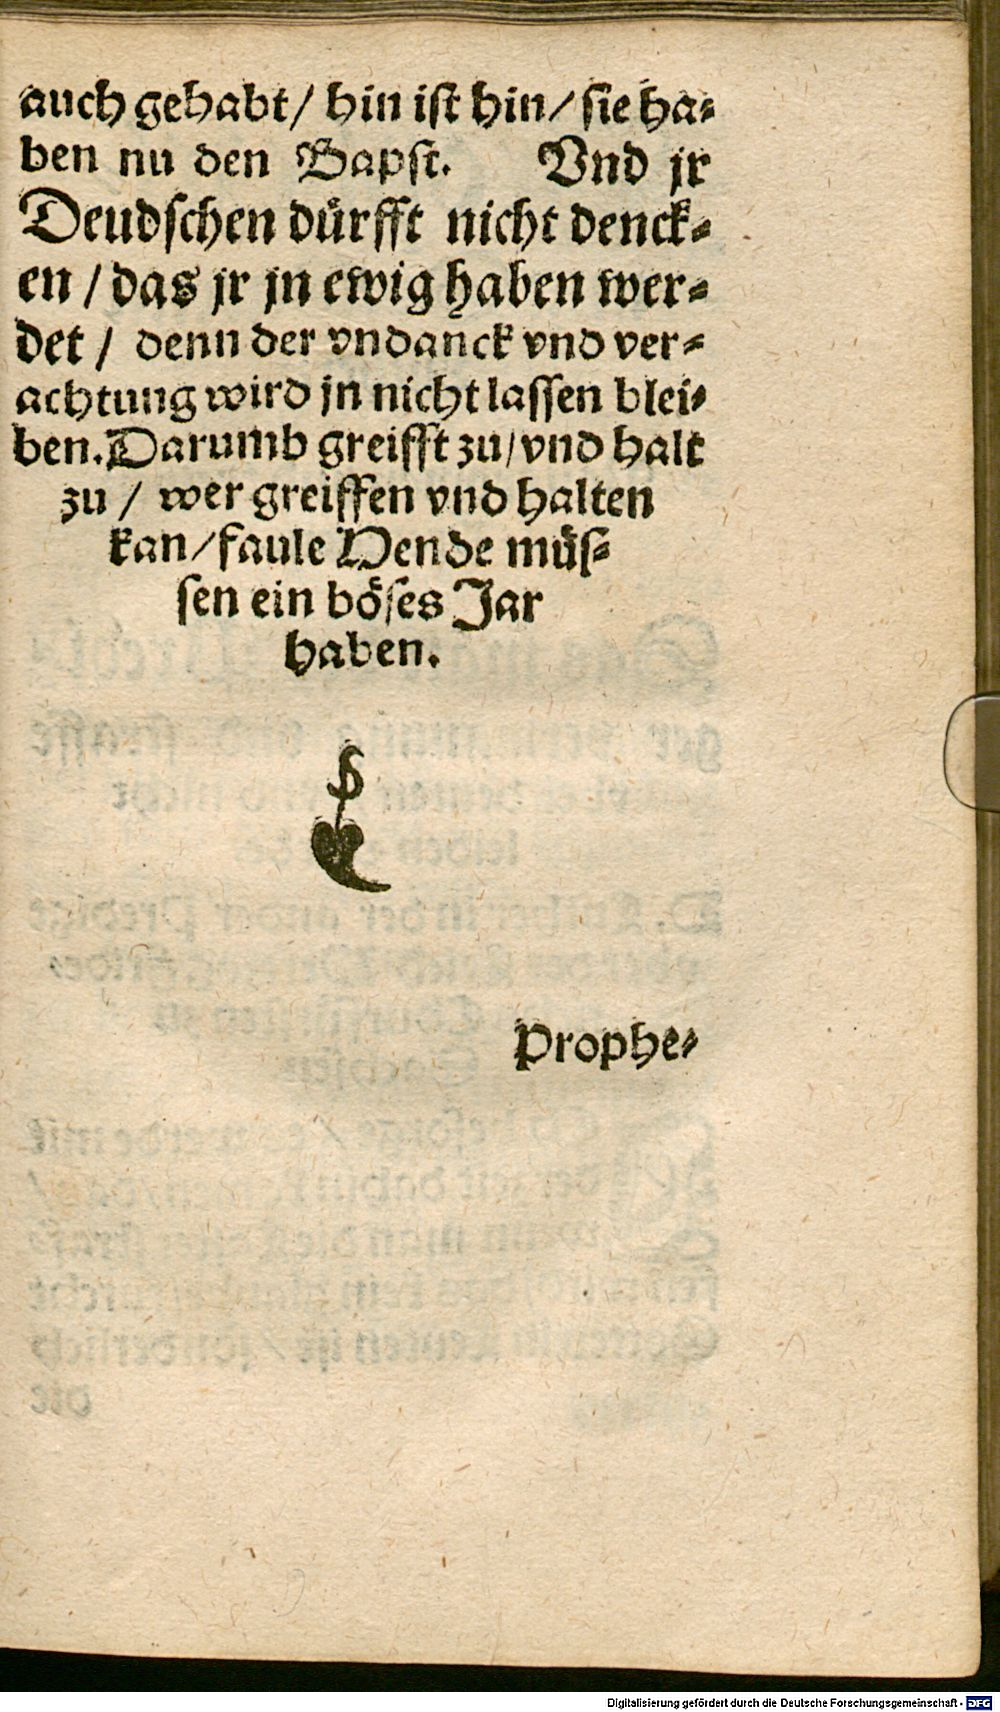 auch gehabt/ hin iſt hin/ ſie ha⸗
ben nu den Bapſt. Vnd jr
Deudſchen dürfft nicht denck⸗
en / das jr jn ewig haben wer⸗
det / denn der vndanck vnd ver⸗
achtung wird jn nicht laſſen blei⸗
ben. Darumb greifft zu/ vnd halt
zu / wer greiffen vnd halten
kan/ faule Hende müſ⸗
ſen ein böſes Jar
haben.
Prophe⸗
Digitalisierung gefördert durch die Deutsche Forschungsgemeinschaft - DFG